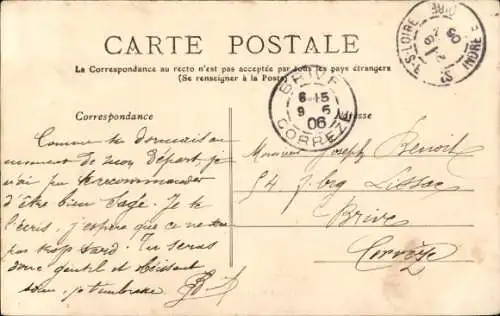 CARTE POSTALE
La Correspondance au recto n'est pas acceptée par tous les pays étrangers
(Se renseigner à la Poste)
Correspondance
Adresse
BRIVE
6-15
9 - 6
06
CORREZE
S-LOIRE
INDRE
Comme tu dormais au
moment de mon Départ, je
n'ai pu te recommander
d'être bien sage. Je te
l'écris, j'espère que ce ne
pas trop tard. Tu seras
donc gentil et
Monsieur Joseph Benoit
54 f. brg Lissac
Brive
Corrèze